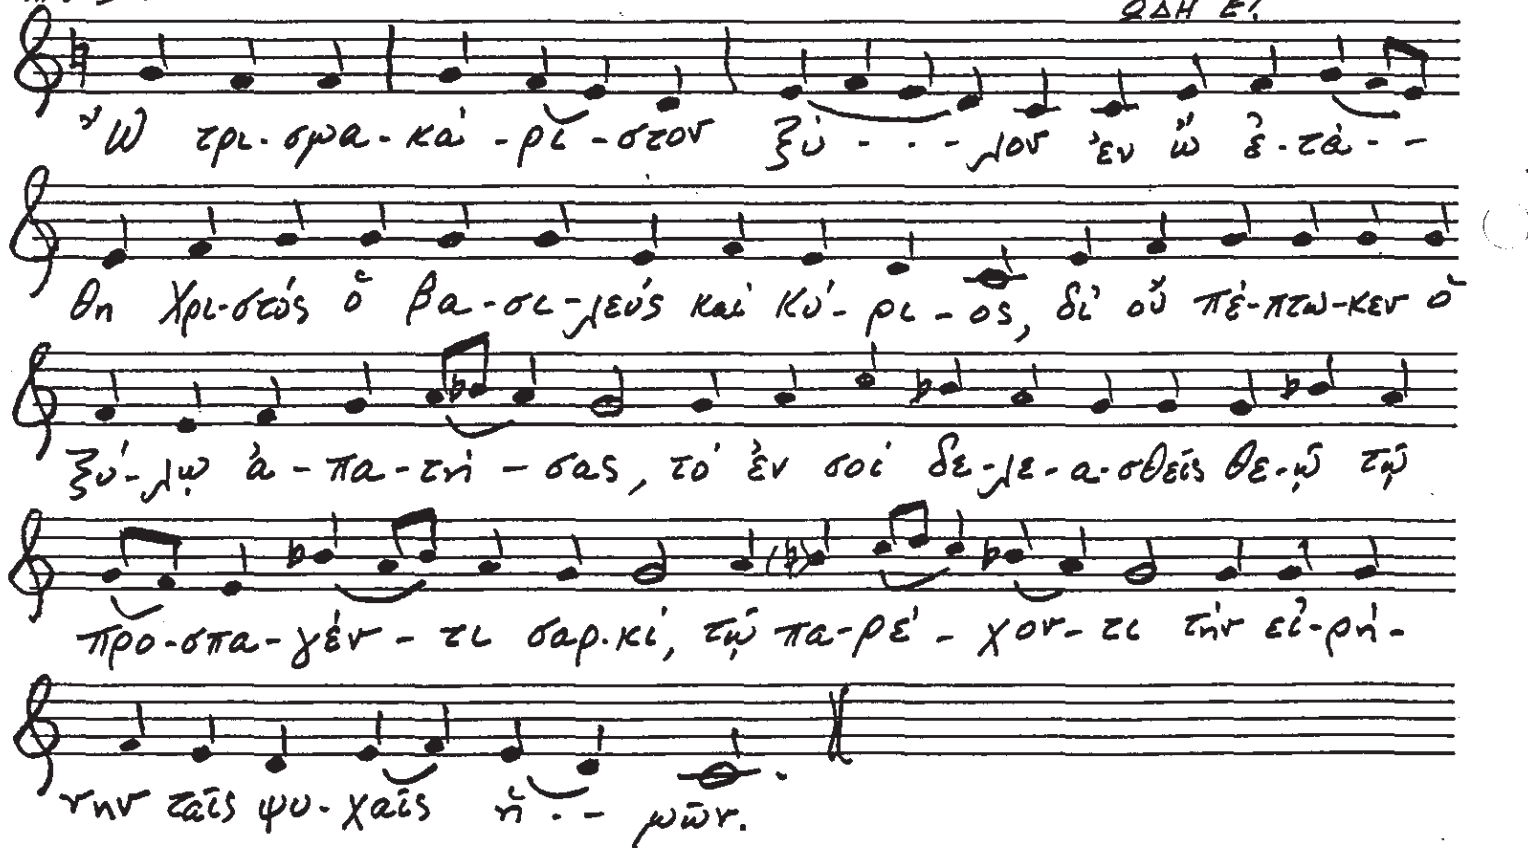 ΩΔΗ Ε!
Ὦ τρι-σμα-κά-ρι-στον ξύ---λον ἐν ᾧ ἐ-τά--
θη Χρι-στός ὁ βα-σι-λεύς καί Κύ-ρι-ος, δι' οὗ πέ-πτω-κεν ὁ
ξύ-λῳ ἀ-πα-τή-σας, τό ἐν σοί δε-λε-α-σθείς Θε-ῷ τῷ
προ-σπα-γέν-τι σαρ-κί, τῷ πα-ρέ-χον-τι τήν εἰ-ρή-
νην ταῖς ψυ-χαῖς ἡ--μῶν.